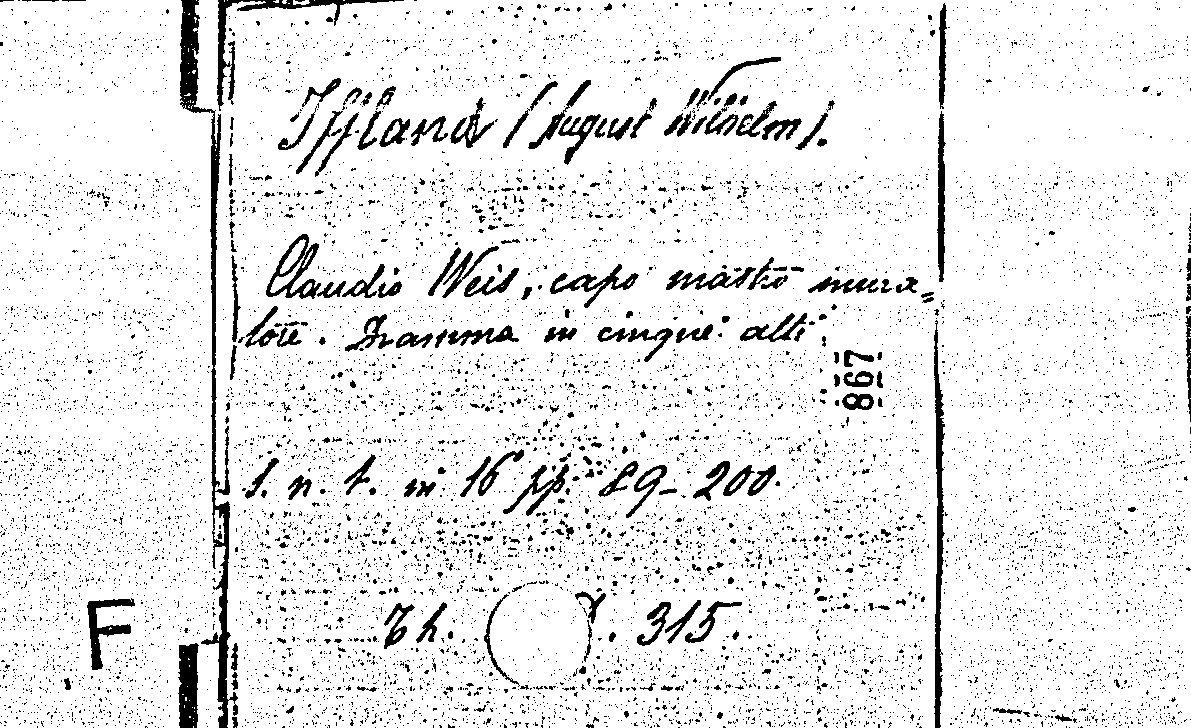 Iffland (August Wilhelm).
Claudio Weis, capo mastro mura=
tore. Dramma in cinque atti.
867
s. n. t. in 16 pp. 89-200.
F
Th. . 315.